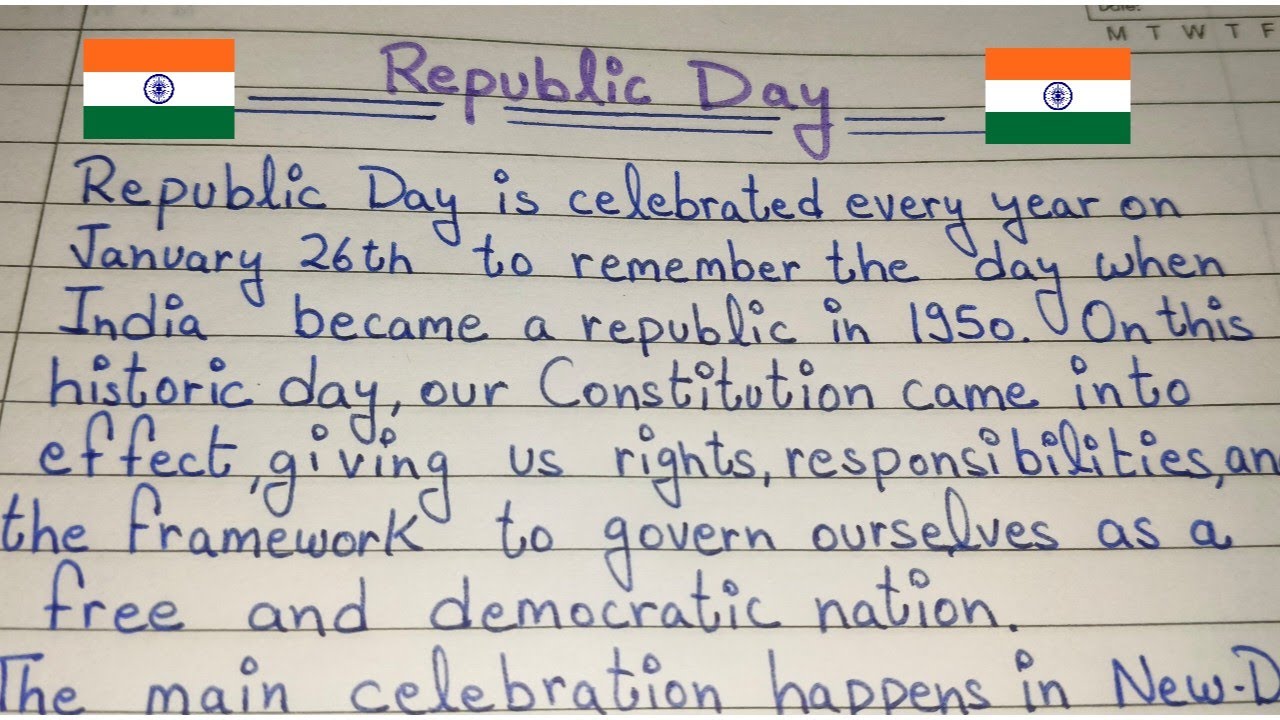 Date:
M T W T F
Republic Day
Republic Day is celebrated every year on
January 26th to remember the day when
India became a republic in 1950. On this
historic day, our Constitution came into
effect, giving us rights, responsibilities, an
the framework to govern ourselves as a
free and democratic nation.
The main celebration happens in New-D